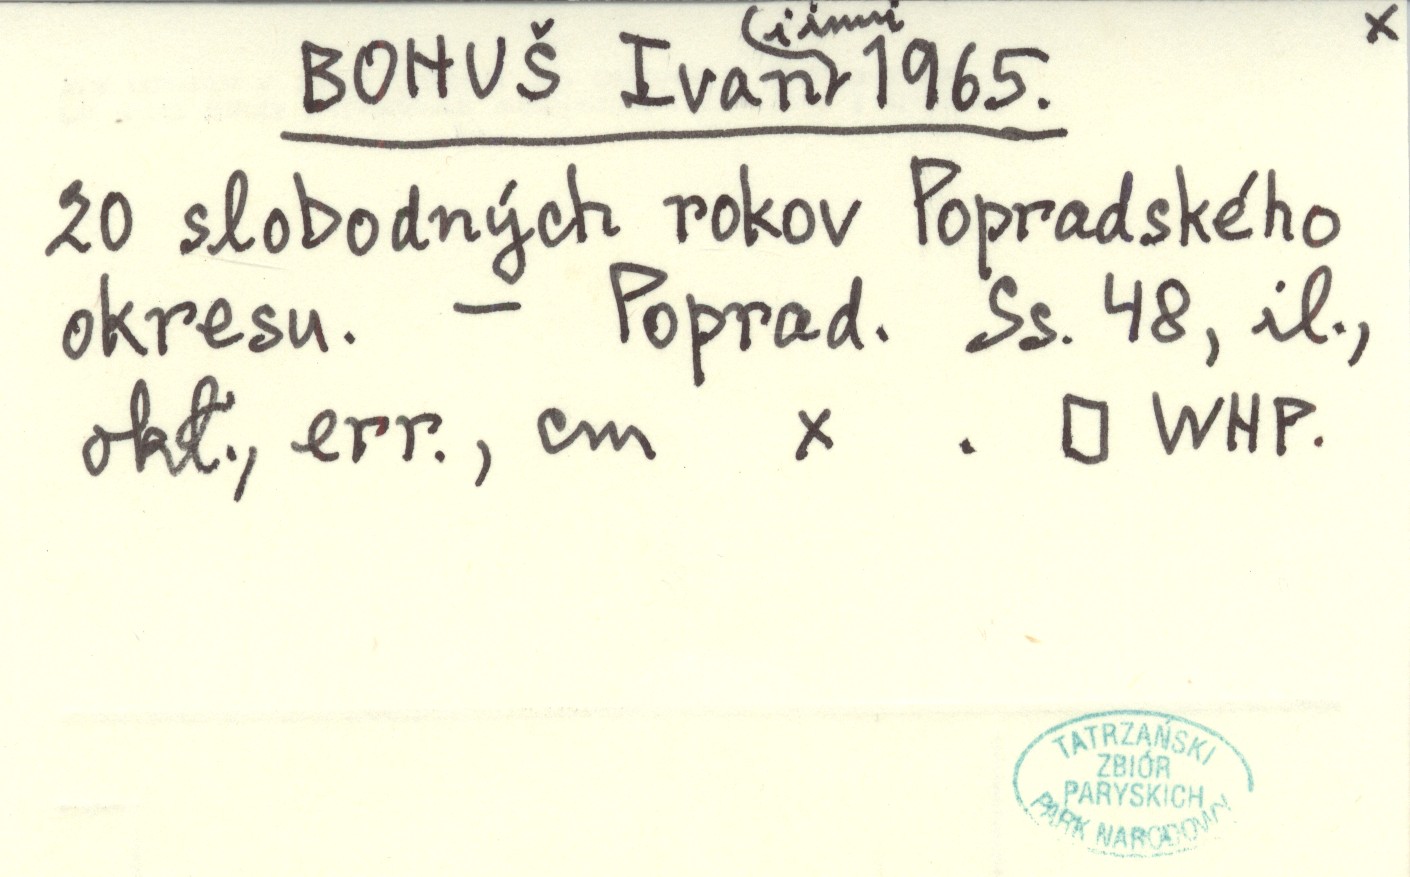 x
BOHUŠ Ivan (i inni) 1965.
20 slobodných rokov Popradského
okresu. – Poprad. Ss. 48, il.,
okł., err., cm x . □ WHP.
TATRZAŃSKI
ZBIÓR
PARYSKICH
PARK NARODOWY